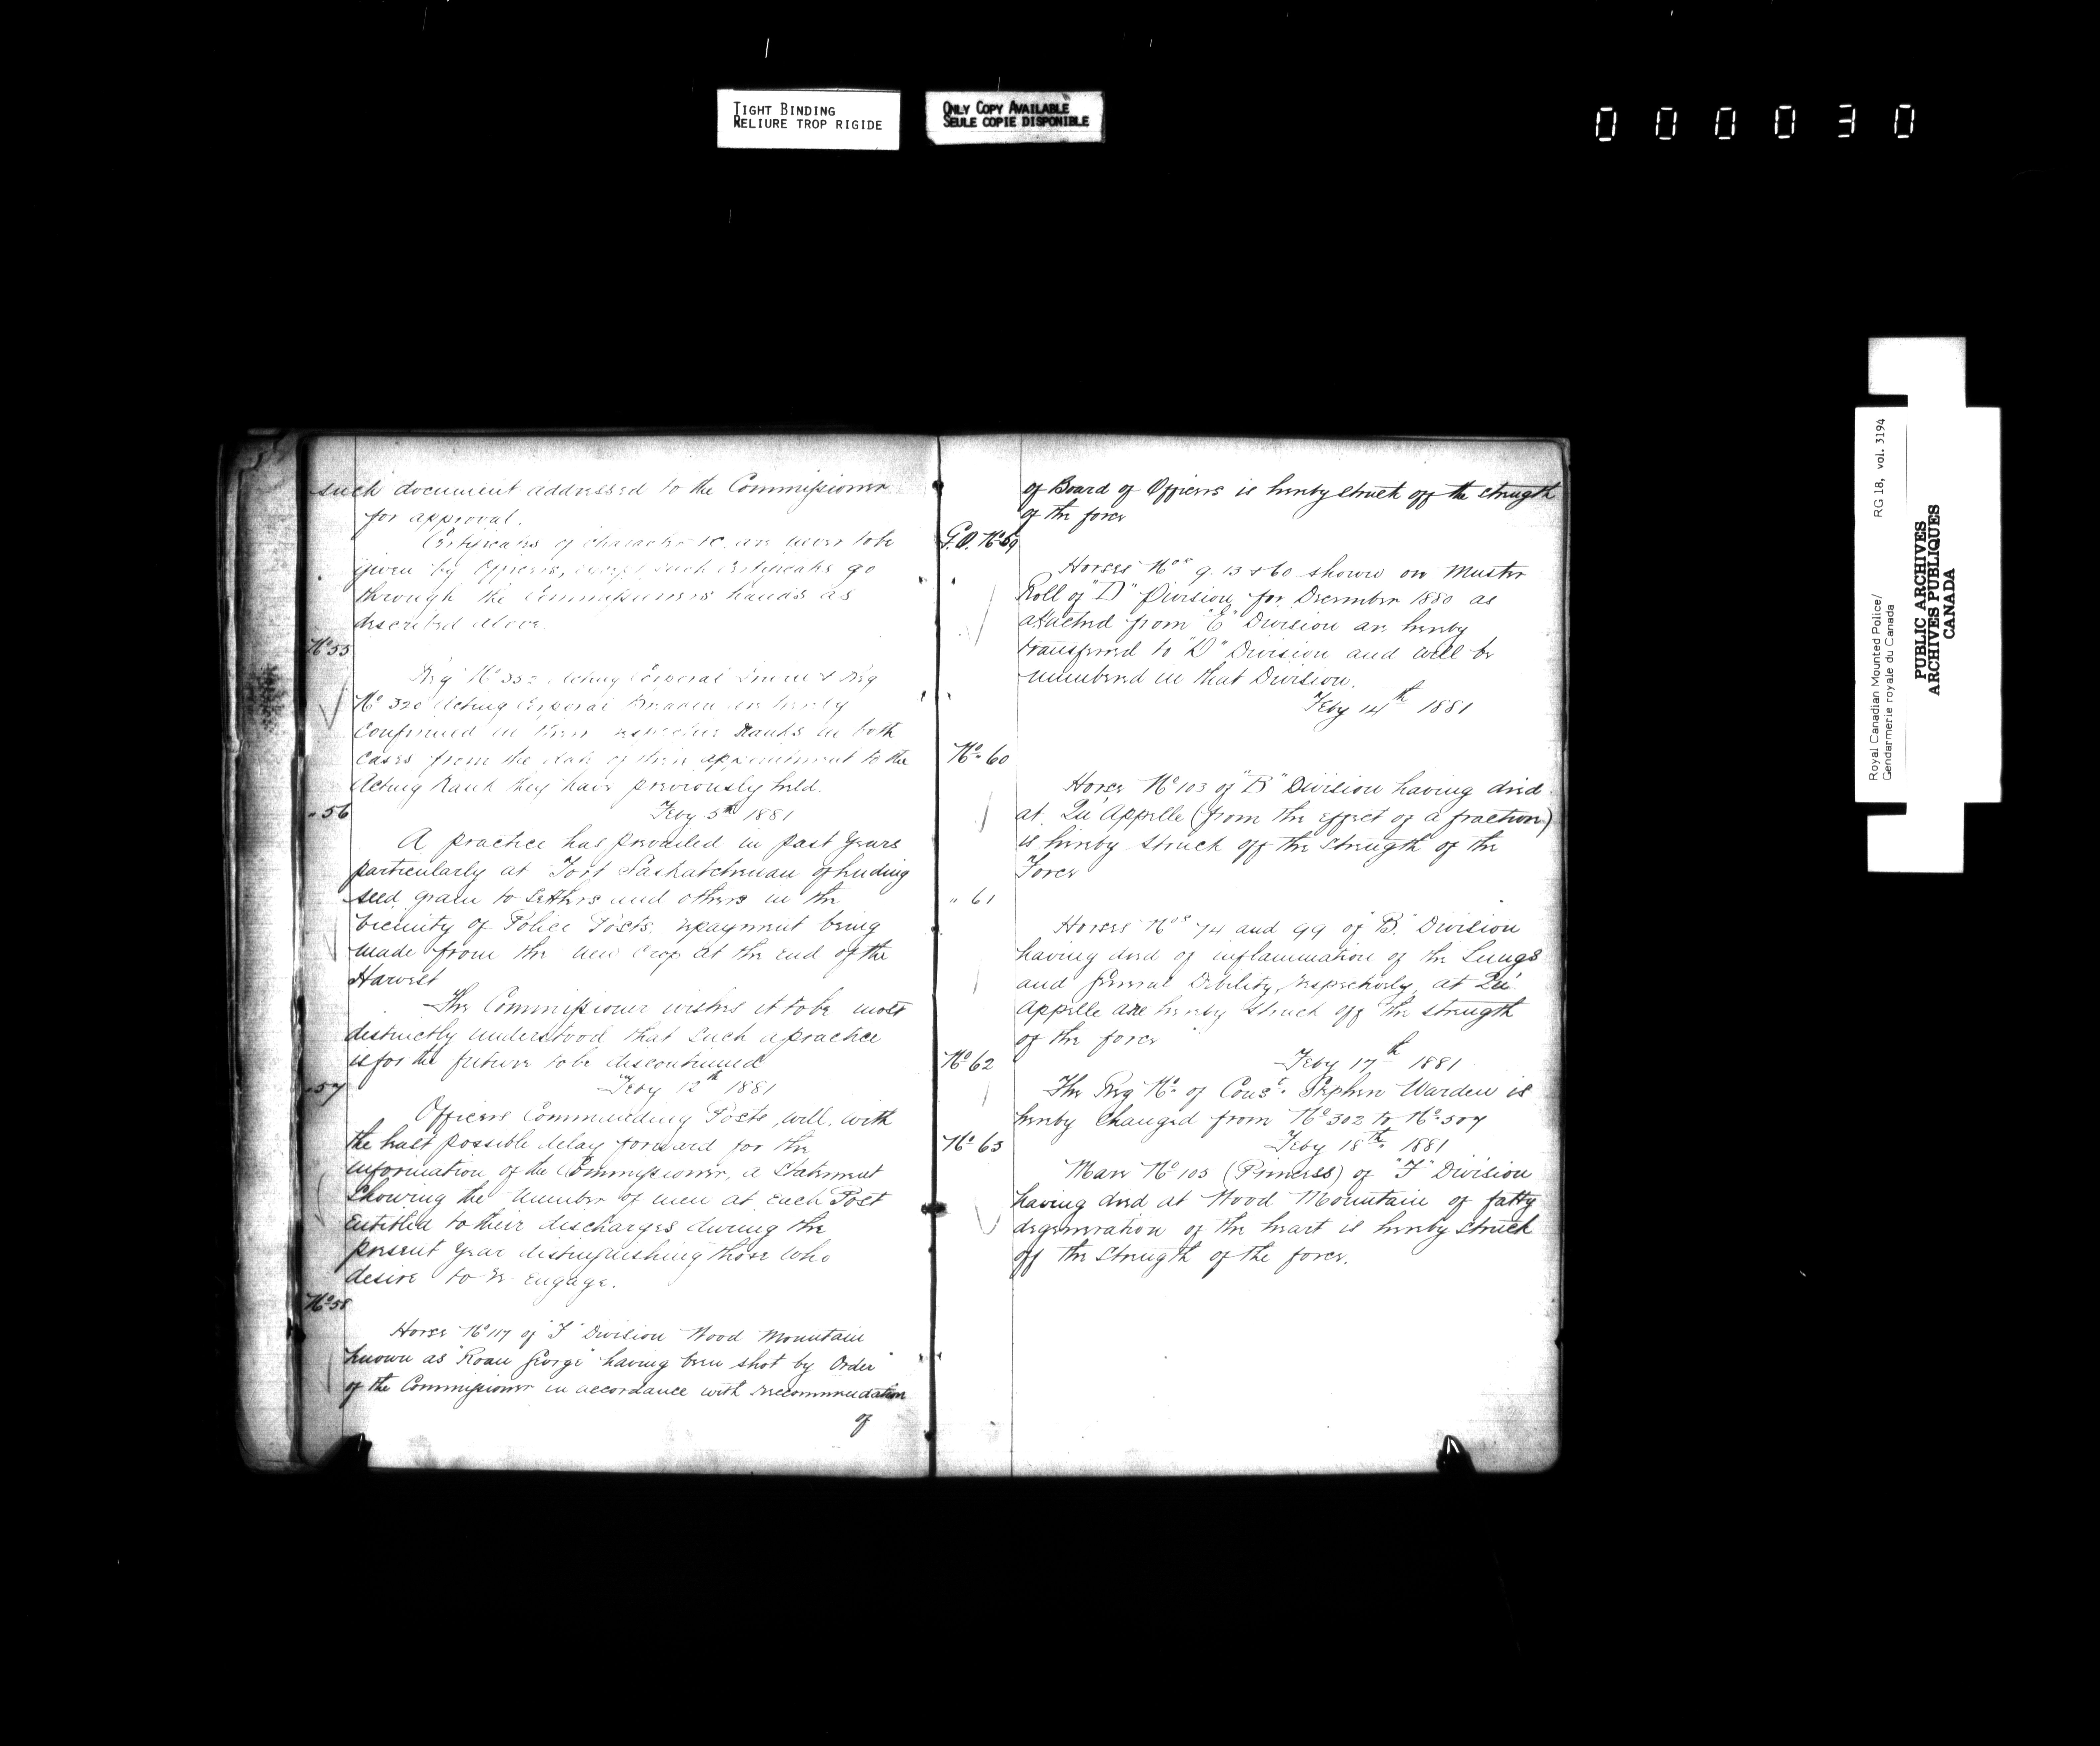 TIGHT BINDING
RELIURE TROP RIGIDE
ONLY COPY AVAILABLE
SEULE COPIE DISPONIBLE
0 0 0 0 3 0
such document addressed to the Commissioner
for approval.
Certificates of character &c. are never to be
given by Officers, except such Certificates go
through the Commissioners hands as
described above.
No 55
Reg No 332 Acting Corporal & Reg
No 320 Acting Corporal are hereby
confirmed in their respective Ranks in both
cases from the date of their appointment to the
Acting Rank they have previously held.
Feby 5th 1881
" 56
A practice has prevailed in past years
particularly at Fort Saskatchewan of lending
seed grain to Settlers and others in the
vicinity of Police Posts. repayment being
made from the new crop at the end of the
Harvest
The Commissioner wishes it to be most
distinctly understood that such a practice
is for the future to be discontinued
Feby 12th 1881
" 57
Officers Commanding Posts, will, with
the least possible delay forward for the
information of the Commissioner, a Statement
Showing the number of men at each Post
Entitled to their discharges during the
present year distinguishing those who
desire to re-engage.
No 58
Horse No 117 of "F" Division Wood Mountain
known as "Roan George" having been shot by Order
of the Commissioner in accordance with reccommendation
of
of Board of Officers is hereby struck off the strength
of the force
G.O. No 59
Horses Nos 9. 13 & 60 shown on Muster
Roll of "D" Division for December 1880 as
attached from "E" Division are hereby
transferred to "D" Division and will be
numbered in that Division.
Feby 14th 1881
No 60
Horse No 103 of "B" Division having died
at Qu'Appelle (from the effect of a fraction)
is hereby struck off the strength of the
Force
" 61
Horses Nos 74 and 99 of "B" Division
having died of inflammation of the Lungs
and General Debility, respectively, at Qu'
Appelle are hereby struck off the strength
of the force
Feby 17th 1881
No 62
The Reg No of Const. Stephen Warden is
hereby changed from No 302 to No 507
Feby 18th 1881
No 63
Mare No 105 (Princess) of "F" Division
having died at Wood Mountain of fatty
degeneration of the heart is hereby struck
off the strength of the force.
Royal Canadian Mounted Police/
Gendarmerie royale du Canada
RG 18, vol. 3194
PUBLIC ARCHIVES
ARCHIVES PUBLIQUES
CANADA